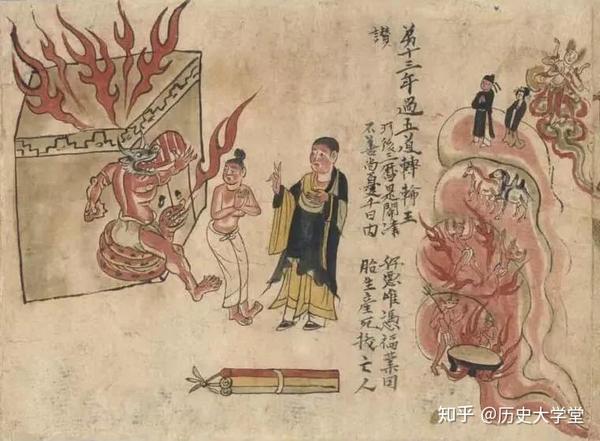 弟十三年過五道轉輪王
讃
所後三歷是關津 好惡唯憑福業因
不善尚憂千日内 胎生産死拔亡人
知乎 @历史大学堂